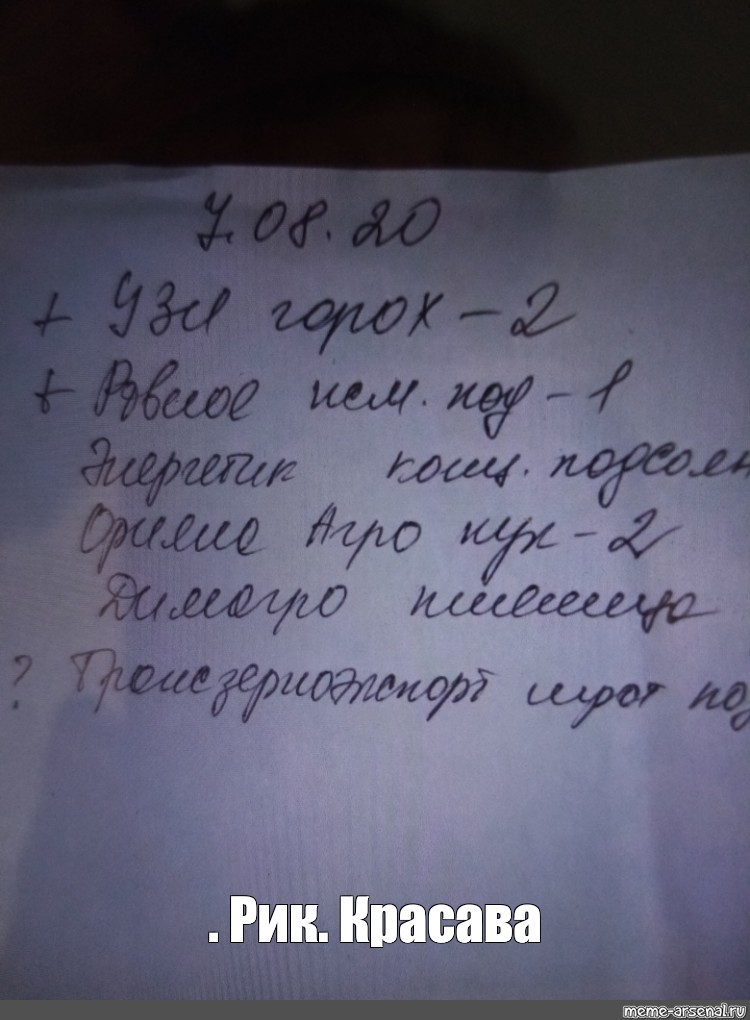 7.08.20
+ УЗН горох - 2
+ Ровное под - 1
Энергетик конц. подсолн
Агро кук - 2
Димагро пшеница
? Трансзерноэкспорт шрот под
. Рик. Красава
meme-arsenal.ru